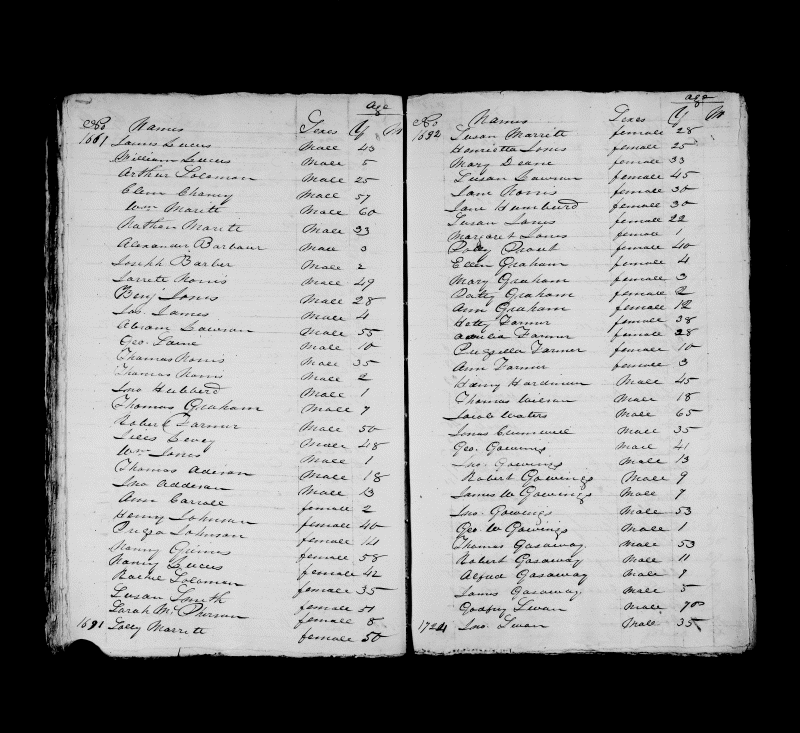 age
No Names Sexes Y M
1661 James Lucus Male 43
William Lucus Male 5
Arthur Solomon Male 25
Clem Chaney Male 57
Wm Maritt Male 60
Nathan Maritt Male 33
Alexander Barbour Male 3
Joseph Barber Male 2
Jarrett Norris Male 49
Benj Jones Male 28
Jos. James Male 4
Abram Lawson Male 55
Geo. Male 10
Thomas Norris Male 35
Thomas Norris Male 2
Jno Hubberd Male 1
Thomas Graham Male 7
Robert Farmer Male 50
Male 48
Wm Jones Male 1
Thomas Adison Male 18
Jno Addison Male 13
Ann Carroll female 2
Henny Johnson female 40
Johnson female 14
Nanny female 58
Nancy Lucus female 42
Rachel Solomon female 35
Susan Smith female 51
Sarah McPherson female 8
1691 Marrett female 50
age
No Names Sexes Y M
1692 Susan Marrett female 28
Henrietta Jones female 25
Mary Deane female 33
Susan Lawson female 45
Jane Norris female 30
Jane Humberd female 30
Susan Jones female 22
Margaret Jones female 1
Polly Prout female 40
Ellen Graham female 4
Mary Graham female 3
Patty Graham female 2
Ann Graham female 12
Hetty Farmer female 38
Farmer female 28
Farmer female 10
Ann Farmer female 3
Hardiman Male 45
Thomas Wilson Male 18
Jacob Waters Male 65
Jonas Cromwell Male 35
Geo. Gowings Male 41
Jno. Gowings Male 13
Robert Gowings Male 9
James W Gowings Male 7
Jno. Gowings Male 53
Geo. W Gowings Male 1
Thomas Gasaway Male 53
Robert Gasaway Male 11
Alfred Gasaway Male 7
James Gasaway Male 5
Godfry Swan Male 70
1724 Jno. Swan Male 35